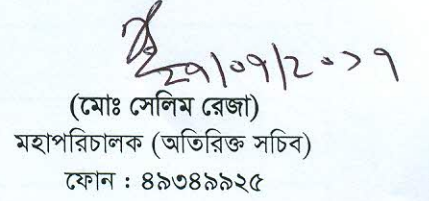 ২৭/০৭/২০১৭
(মোঃ সেলিম রেজা)
মহাপরিচালক (অতিরিক্ত সচিব)
ফোন : ৪৯৩৪৯৯২৫